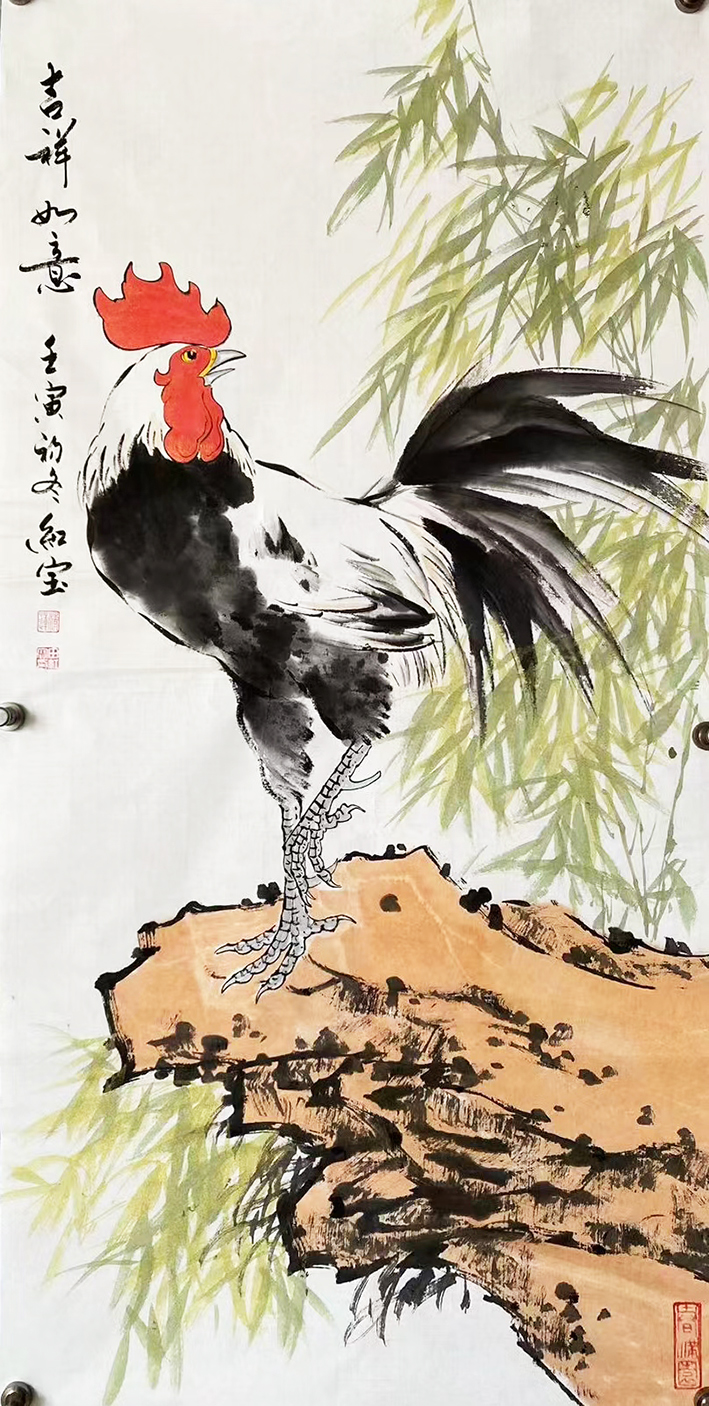 吉祥如意 壬寅初冬 宝